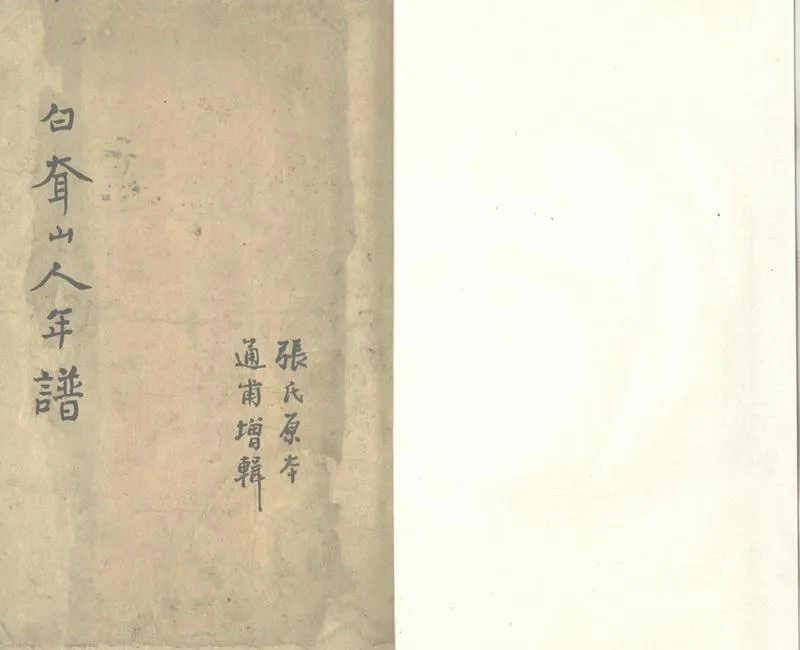 張氏原本
通甫增輯
白耷山人年譜